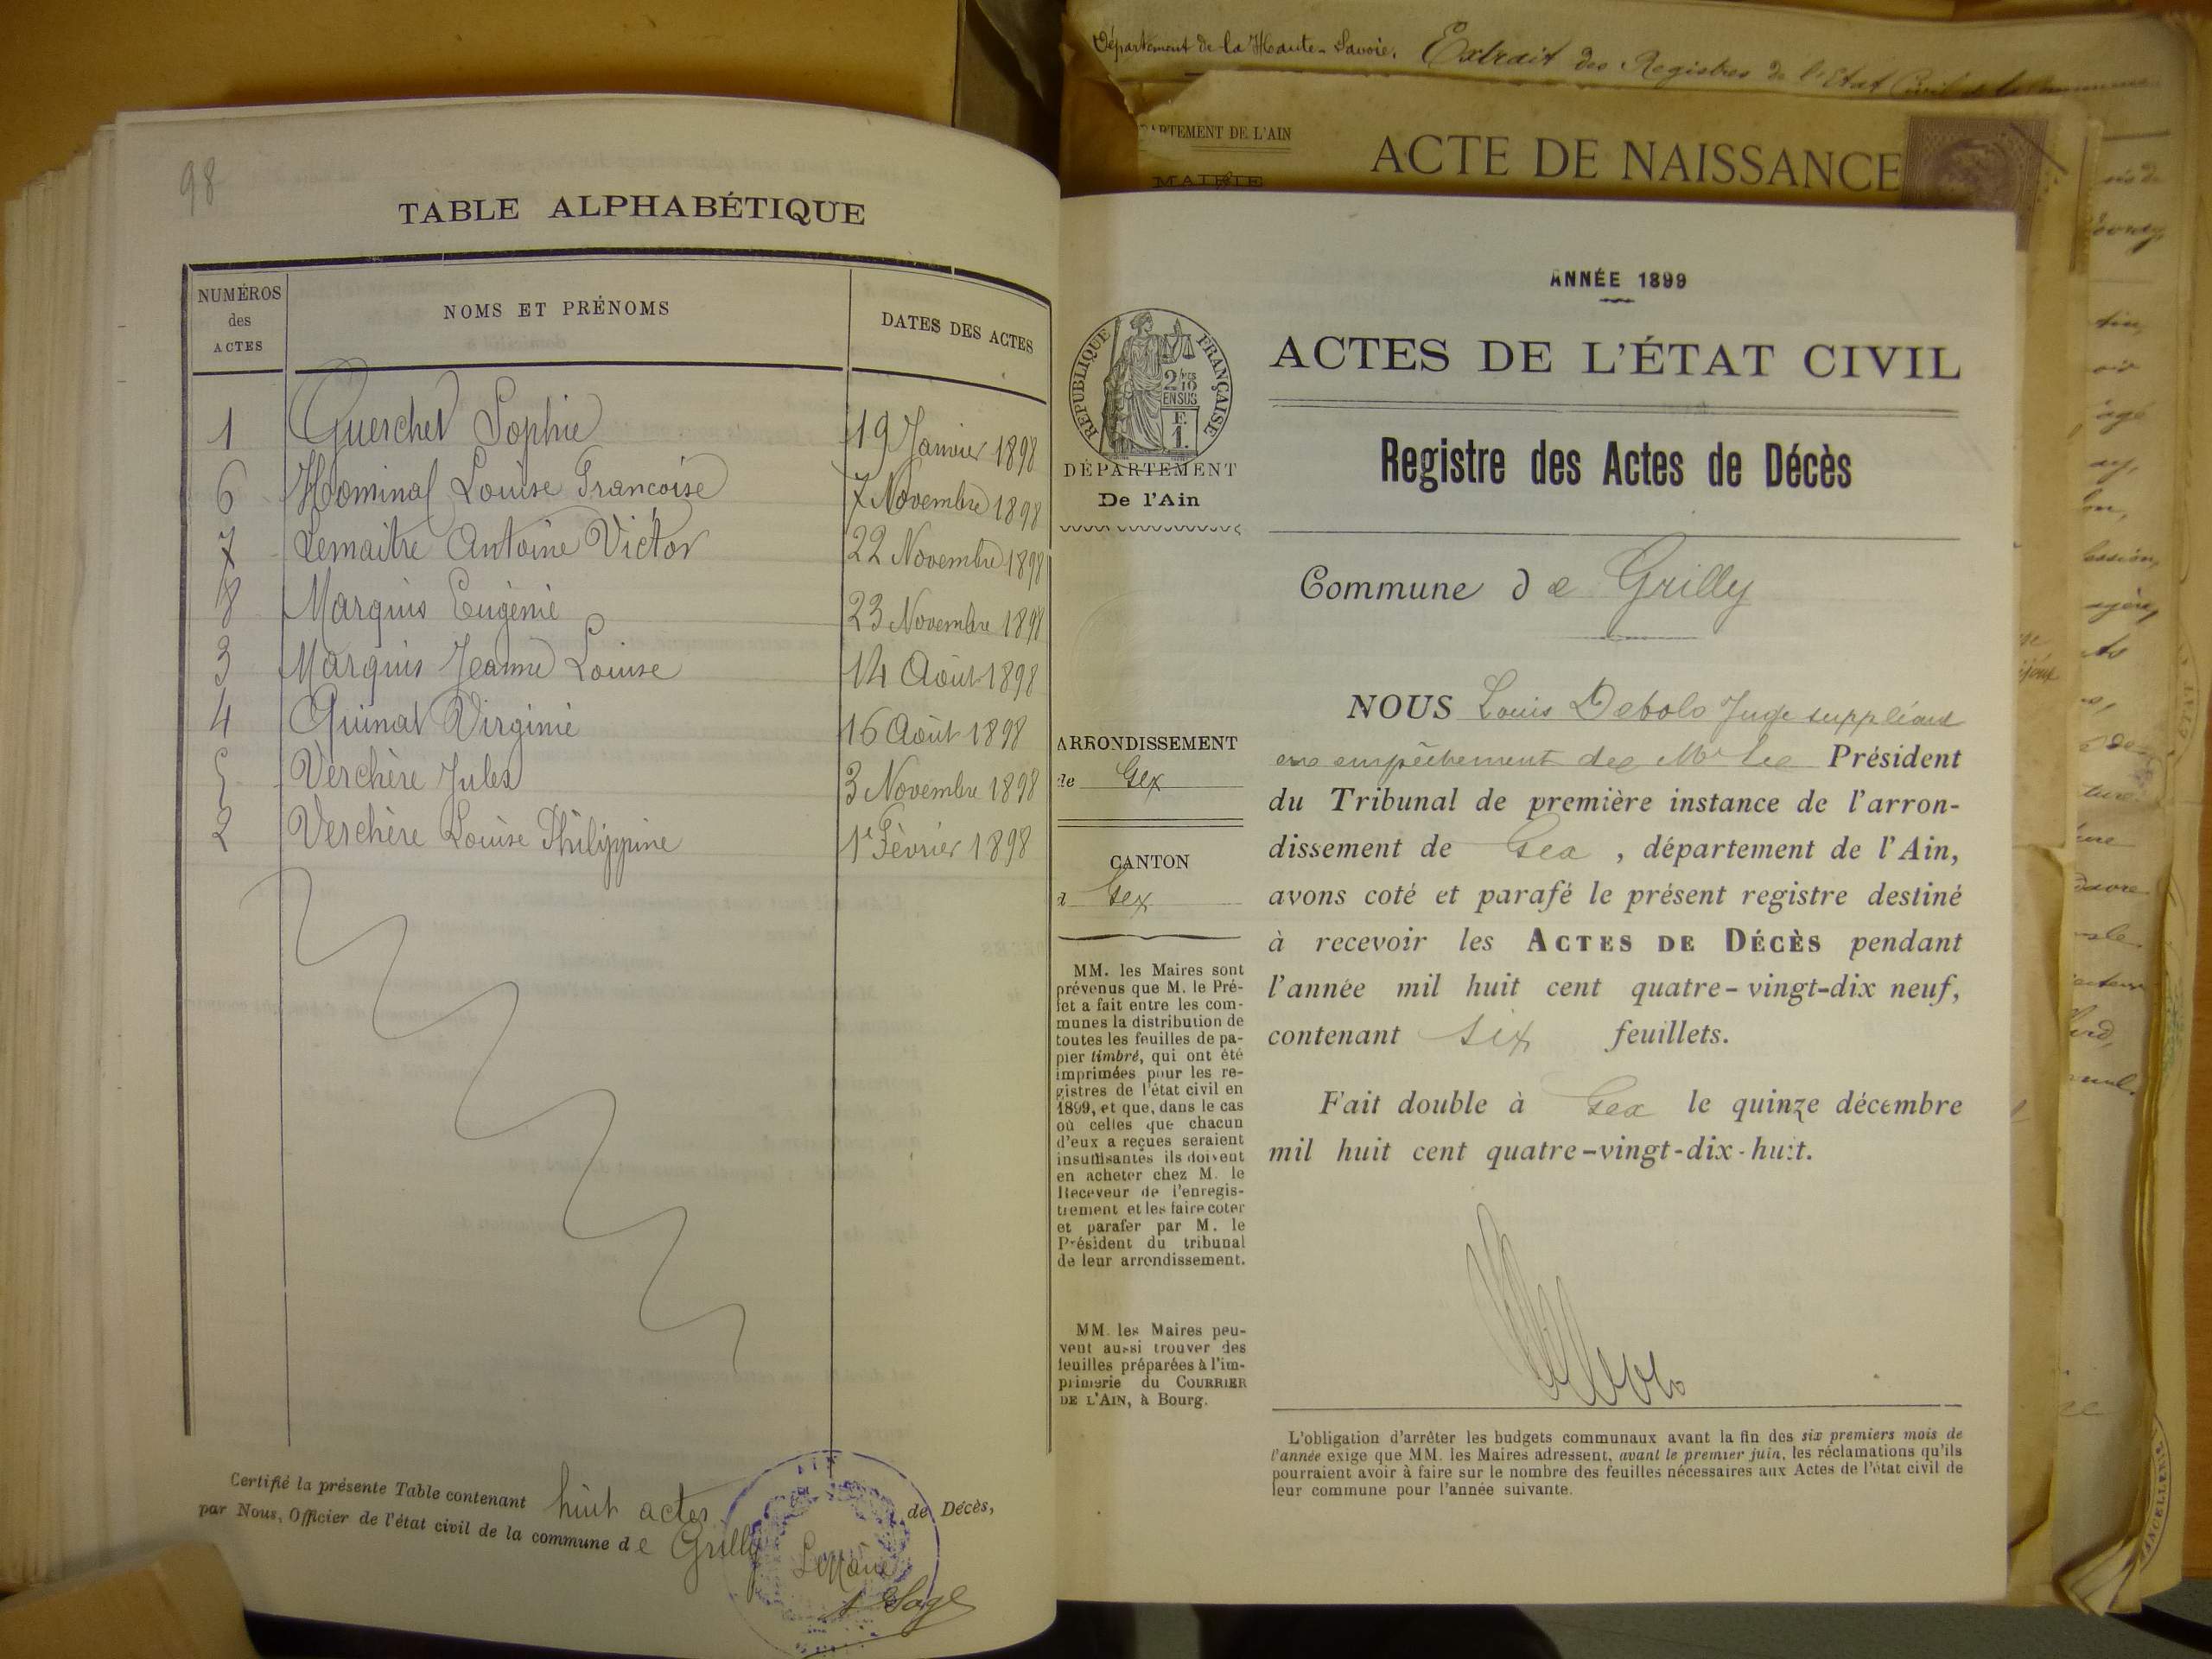 98
TABLE ALPHABÉTIQUE
NUMÉROS des ACTES NOMS ET PRÉNOMS DATES DES ACTES
1 Guerchet Sophie 19 Janvier 1898
6 Hominal Louise Francoise 7 Novembre 1898
7 Lemaitre Antoine Victor 22 Novembre 1898
8 Marquis Eugènie 23 Novembre 1898
3 Marquis Jeanne Louise 14 Août 1898
4 Quinat Virginie 16 Août 1898
5 Verchère Jules 3 Novembre 1898
2 Verchère Louise Philippine 1er Fèvrier 1898
Certifié la présente Table contenant huit actes de Décès,
par Nous, Officier de l'état civil de la commune de Grilly
Le Maire
Département de la Haute-Savoie. Extrait des Registres de l'Etat Civil de la Commune
DEPARTEMENT DE L'AIN
MAIRIE
ACTE DE NAISSANCE
ANNÉE 1899
ACTES DE L'ÉTAT CIVIL
Registre des Actes de Décès
Commune de Grilly
RÉPUBLIQUE FRANÇAISE
2/10
EN SUS
F.
1.
DÉPARTEMENT
De l'Ain
ARRONDISSEMENT
de Gex
CANTON
d Gex
MM. les Maires sont
prévenus que M. le Pré-
fet a fait entre les com-
munes la distribution de
toutes les feuilles de pa-
pier timbré, qui ont été
imprimées pour les re-
gistres de l'état civil en
1899, et que, dans le cas
où celles que chacun
d'eux a reçues seraient
insuffisantes ils doivent
en acheter chez M. le
Receveur de l'enregis-
trement et les faire coter
et parafer par M. le
Président du tribunal
de leur arrondissement.
MM. les Maires peu-
vent aussi trouver des
feuilles préparées à l'im-
primerie du COURRIER
DE L'AIN, à Bourg.
NOUS Louis Debolo Juge suppléant
en empêchement de Mr le Président
du Tribunal de première instance de l'arron-
dissement de Gex, département de l'Ain,
avons coté et parafé le présent registre destiné
à recevoir les ACTES DE DÉCÈS pendant
l'année mil huit cent quatre-vingt-dix neuf,
contenant six feuillets.
Fait double à Gex le quinze décembre
mil huit cent quatre-vingt-dix-huit.
L'obligation d'arrêter les budgets communaux avant la fin des six premiers mois de
l'année exige que MM. les Maires adressent, avant le premier juin, les réclamations qu'ils
pourraient avoir à faire sur le nombre des feuilles nécessaires aux Actes de l'état civil de
leur commune pour l'année suivante.